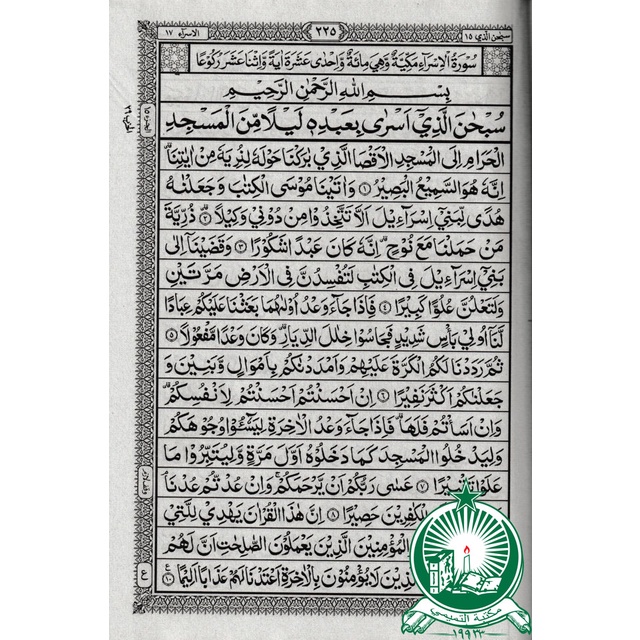 سبحٰن الذي ١٥
٢٢٥
الاسراء ١٧
سُوْرَةُ الْاِسْرَآءِ مَكِّيَّةٌ وَّهِيَ مِائَةٌ وَّاِحْدٰى عَشَرَةَ اٰيَةً وَّاثْنَا عَشَرَ رُكُوْعًا
بِسْمِ اللّٰهِ الرَّحْمٰنِ الرَّحِيْمِ
سُبْحٰنَ الَّذِيْۤ اَسْرٰى بِعَبْدِهٖ لَيْلًا مِّنَ الْمَسْجِدِ
الْحَرَامِ اِلَى الْمَسْجِدِ الْاَقْصَا الَّذِيْ بٰرَكْنَا حَوْلَهٗ لِنُرِيَهٗ مِنْ اٰيٰتِنَاؕ
اِنَّهٗ هُوَ السَّمِيْعُ الْبَصِيْرُ ۝١ وَاٰتَيْنَا مُوْسَى الْكِتٰبَ وَجَعَلْنٰهُ
هُدًى لِّبَنِيْۤ اِسْرَآءِيْلَ اَلَّا تَتَّخِذُوْا مِنْ دُوْنِيْ وَكِيْلًا ۝٢ ذُرِّيَّةَ
مَنْ حَمَلْنَا مَعَ نُوْحٍؕ اِنَّهٗ كَانَ عَبْدًا شَكُوْرًا ۝٣ وَقَضَيْنَاۤ اِلٰى
بَنِيْۤ اِسْرَآءِيْلَ فِي الْكِتٰبِ لَتُفْسِدُنَّ فِي الْاَرْضِ مَرَّتَيْنِ
وَلَتَعْلُنَّ عُلُوًّا كَبِيْرًا ۝٤ فَاِذَا جَآءَ وَعْدُ اُوْلٰىهُمَا بَعَثْنَا عَلَيْكُمْ عِبَادًا
لَّنَاۤ اُولِيْ بَاْسٍ شَدِيْدٍ فَجَاسُوْا خِلٰلَ الدِّيَارِؕ وَكَانَ وَعْدًا مَّفْعُوْلًا ۝٥
ثُمَّ رَدَدْنَا لَكُمُ الْكَرَّةَ عَلَيْهِمْ وَاَمْدَدْنٰكُمْ بِاَمْوَالٍ وَّبَنِيْنَ وَ
جَعَلْنٰكُمْ اَكْثَرَ نَفِيْرًا ۝٦ اِنْ اَحْسَنْتُمْ اَحْسَنْتُمْ لِاَنْفُسِكُمْ
وَاِنْ اَسَاْتُمْ فَلَهَاؕ فَاِذَا جَآءَ وَعْدُ الْاٰخِرَةِ لِيَسُوْٓءٗا وُجُوْهَكُمْ
وَلِيَدْخُلُوا الْمَسْجِدَ كَمَا دَخَلُوْهُ اَوَّلَ مَرَّةٍ وَّلِيُتَبِّرُوْا مَا
عَلَوْا تَتْبِيْرًا ۝٧ عَسٰى رَبُّكُمْ اَنْ يَّرْحَمَكُمْۚ وَاِنْ عُدْتُّمْ عُدْنَا
لِلْكٰفِرِيْنَ حَصِيْرًا ۝٨ اِنَّ هٰذَا الْقُرْاٰنَ يَهْدِيْ لِلَّتِيْ
الْمُؤْمِنِيْنَ الَّذِيْنَ يَعْمَلُوْنَ الصّٰلِحٰتِ اَنَّ لَهُمْ
الَّذِيْنَ لَا يُؤْمِنُوْنَ بِالْاٰخِرَةِ اَعْتَدْنَا لَهُمْ عَذَابًا اَلِيْمًا ۝١٠
ع
مكتبة